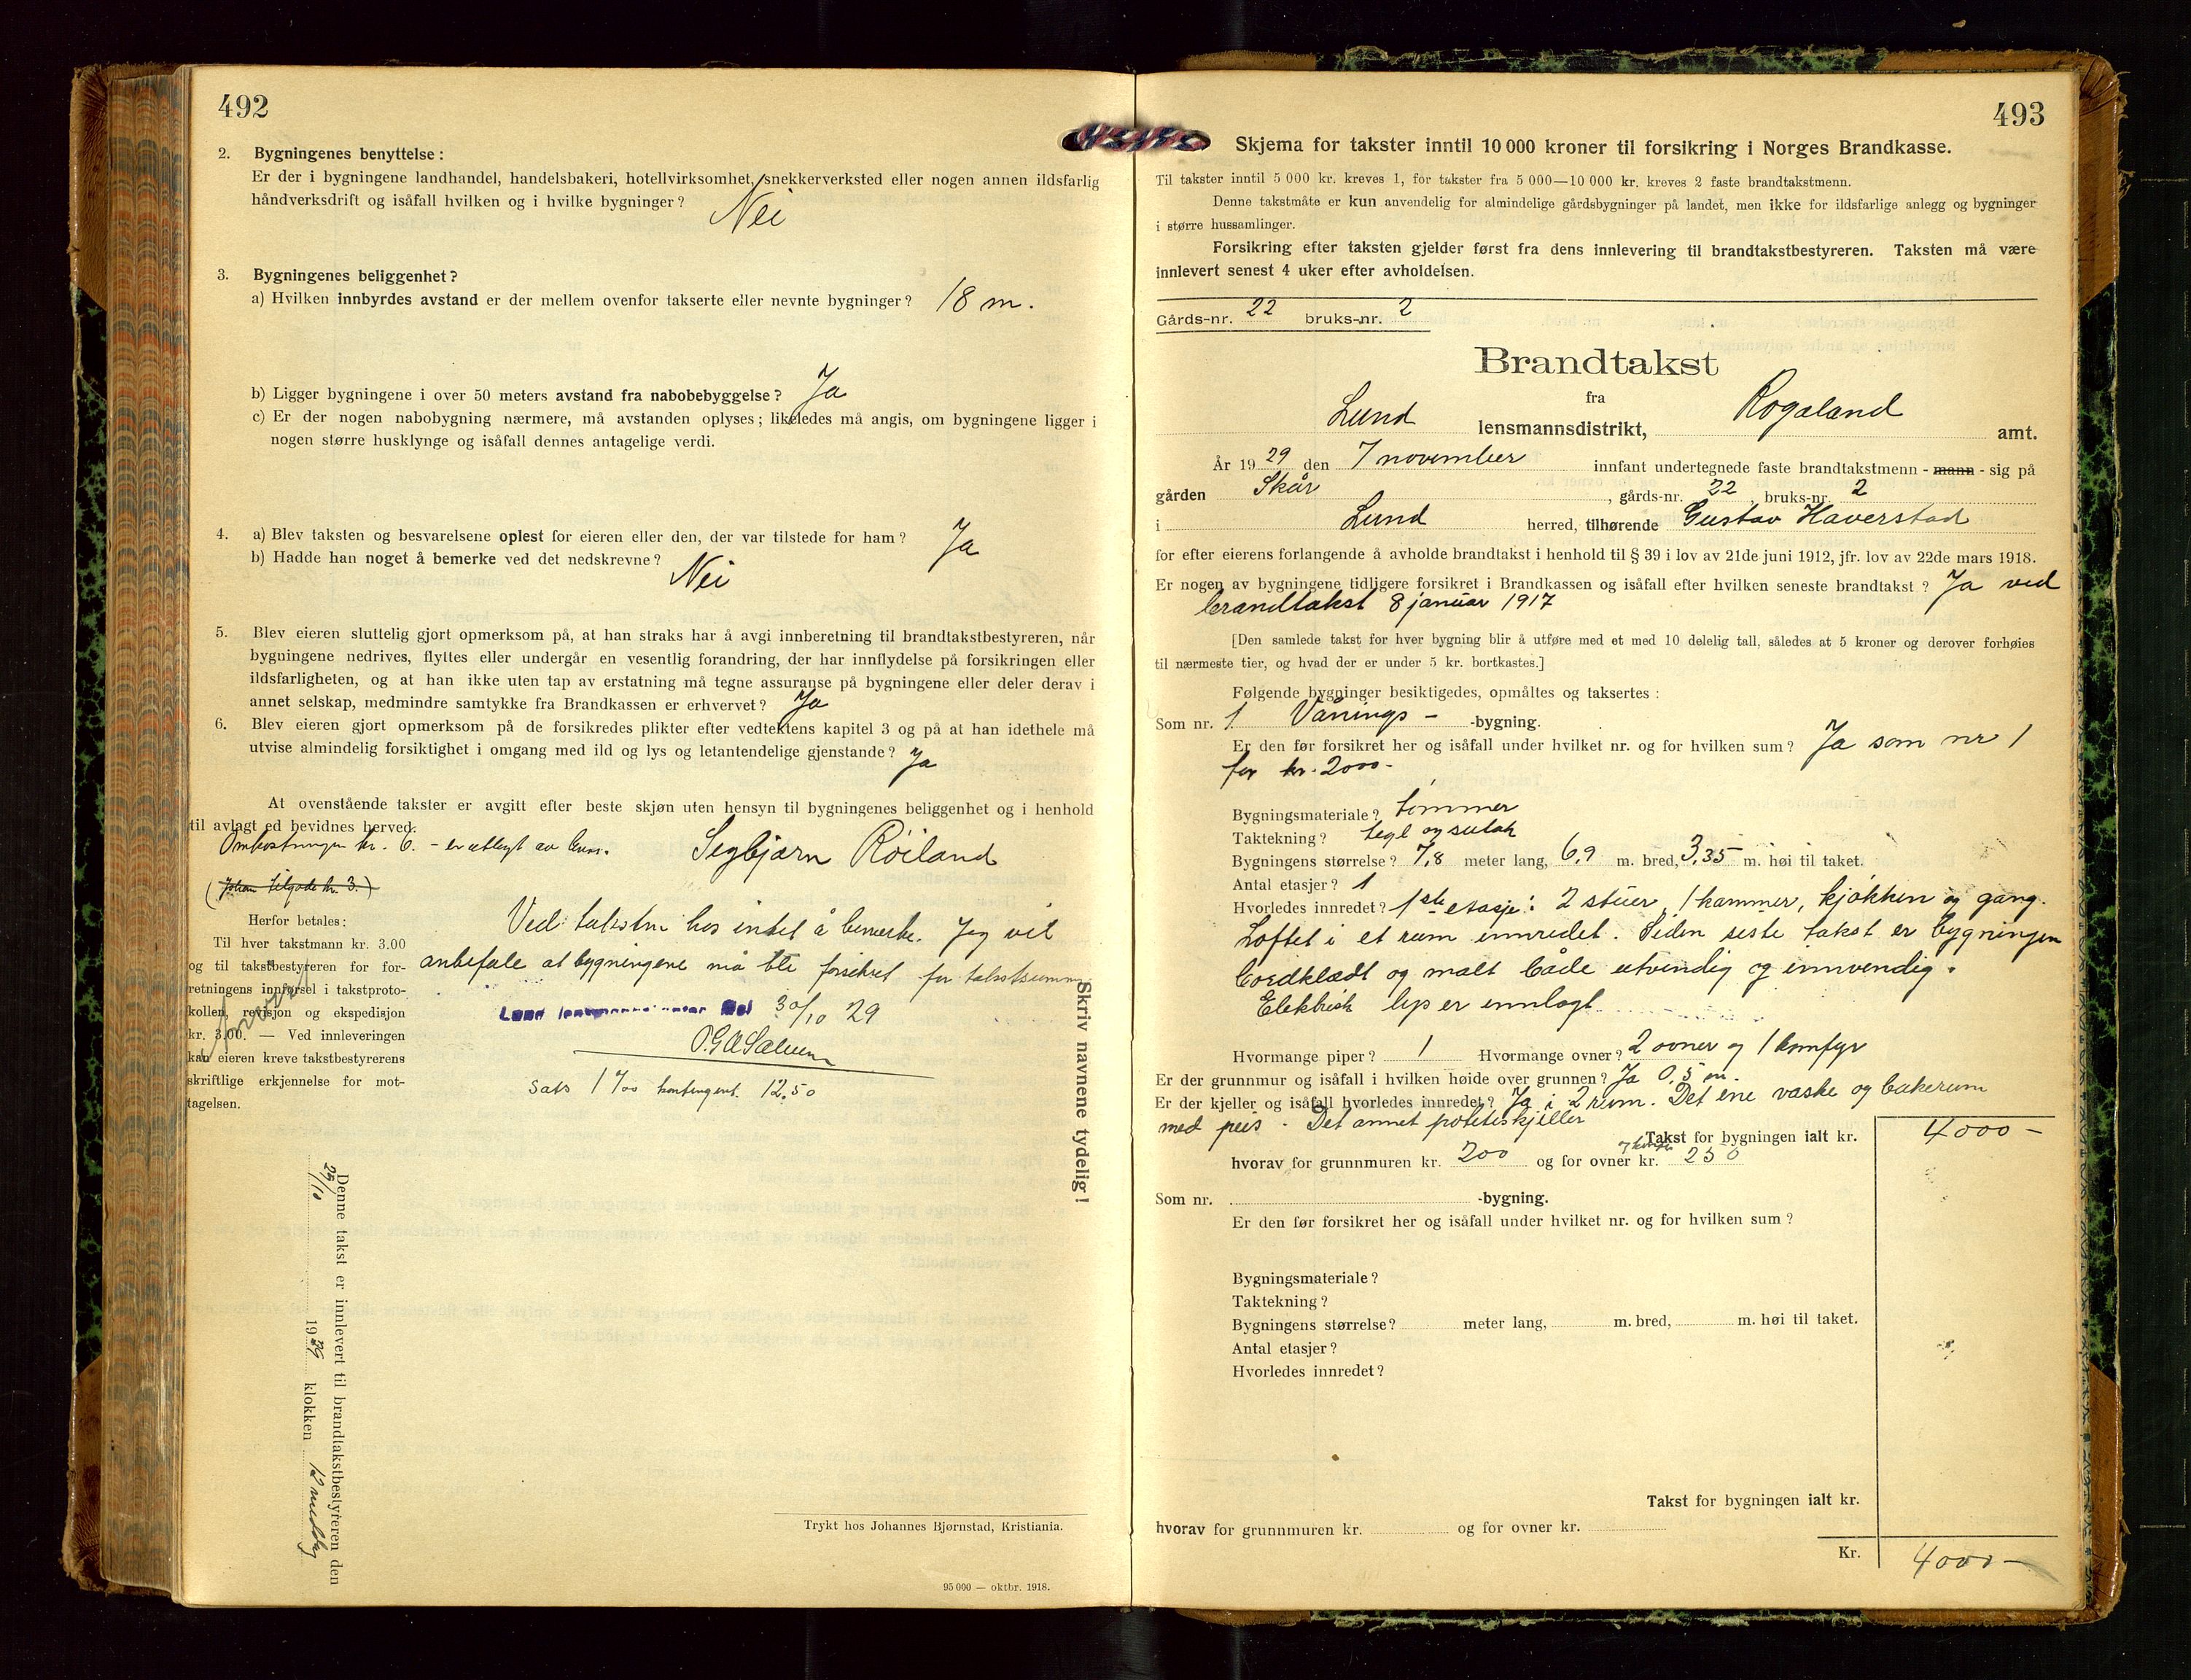 492
2. Bygningenes benyttelse:
Er der i bygningene landhandel, handelsbakeri, hotellvirksomhet, snekkerverksted eller nogen annen ildsfarlig
håndverksdrift og isåfall hvilken og i hvilke bygninger? Nei
3. Bygningenes beliggenhet?
a) Hvilken innbyrdes avstand er der mellem ovenfor takserte eller nevnte bygninger? 18 m.
b) Ligger bygningene i over 50 meters avstand fra nabobebyggelse? Ja
c) Er der nogen nabobygning nærmere, må avstanden oplyses; likeledes må angis, om bygningene ligger i
nogen større husklynge og isåfall dennes antagelige verdi.
4. a) Blev taksten og besvarelsene oplest for eieren eller den, der var tilstede for ham? Ja
b) Hadde han noget å bemerke ved det nedskrevne? Nei
5. Blev eieren sluttelig gjort opmerksom på, at han straks har å avgi innberetning til brandtakstbestyreren, når
bygningene nedrives, flyttes eller undergår en vesentlig forandring, der har innflydelse på forsikringen eller
ildsfarligheten, og at han ikke uten tap av erstatning må tegne assuranse på bygningene eller deler derav i
annet selskap, medmindre samtykke fra Brandkassen er erhvervet? Ja
6. Blev eieren gjort opmerksom på de forsikredes plikter efter vedtektens kapitel 3 og på at han idethele må
utvise almindelig forsiktighet i omgang med ild og lys og letantendelige gjenstande? Ja
At ovenstående takster er avgitt efter beste skjøn uten hensyn til bygningenes beliggenhet og i henhold
til avlagt ed bevidnes herved.
Omkostningen kr. 6. - er utlagt av
Segbjørn Röiland
tilgode kr. 3.)
Herfor betales:
Til hver takstmann kr. 3.00
og til takstbestyreren for for-
retningens innførsel i takstproto-
kollen, revisjon og ekspedisjon
kr. 3.00. — Ved innleveringen
kan eieren kreve takstbestyrerens
skriftlige erkjennelse for mot-
tagelsen.
Ved taksten hos intet å bemerke. Jeg vil
anbefale at bygningene må bli forsikret for takstsummen
Lund 30/10 29
sats 1 ‰ kontingent. 12.50
Skriv navnene tydelig!
Denne takst er innlevert til brandtakstbestyreren den
29/10 1929 klokken 12 middag
Trykt hos Johannes Bjørnstad, Kristiania.
95 000 — oktbr. 1918.
493
Skjema for takster inntil 10 000 kroner til forsikring i Norges Brandkasse.
Til takster inntil 5 000 kr. kreves 1, for takster fra 5 000—10 000 kr. kreves 2 faste brandtakstmenn.
Denne takstmåte er kun anvendelig for almindelige gårdsbygninger på landet, men ikke for ildsfarlige anlegg og bygninger
i større hussamlinger.
Forsikring efter taksten gjelder først fra dens innlevering til brandtakstbestyreren. Taksten må være
innlevert senest 4 uker efter avholdelsen.
Gårds-nr. 22 bruks-nr. 2
Brandtakst
fra
Lund lensmannsdistrikt, Rogaland amt.
År 1929 den 7 november innfant undertegnede faste brandtakstmenn - mann - sig på
gården Skår, gårds-nr. 22, bruks-nr. 2
i Lund herred, tilhørende Gustav Haverstad
for efter eierens forlangende å avholde brandtakst i henhold til § 39 i lov av 21de juni 1912, jfr. lov av 22de mars 1918.
Er nogen av bygningene tidligere forsikret i Brandkassen og isåfall efter hvilken seneste brandtakst? Ja ved
brandtakst 8 januar 1917
[Den samlede takst for hver bygning blir å utføre med et med 10 delelig tall, således at 5 kroner og derover forhøies
til nærmeste tier, og hvad der er under 5 kr. bortkastes.]
Følgende bygninger besiktigedes, opmåltes og taksertes:
Som nr. 1 Vånings - -bygning.
Er den før forsikret her og isåfall under hvilket nr. og for hvilken sum? Ja som nr 1
for kr. 2000.-
Bygningsmateriale? tømmer
Taktekning? tegl og sutak
Bygningens størrelse? 7,8 meter lang, 6,9 m. bred, 3,35 m. høi til taket.
Antal etasjer? 1
Hvorledes innredet? 1ste etasje: 2 stuer, 1 kammer, kjøkken og gang.
Loftet i et rum innredet. Siden siste takst er bygningen
bordklædt og malt både utvendig og innvendig.
Elektrisk lys er innlagt
Hvormange piper? 1 Hvormange ovner? 2 ovner og 1 komfyr
Er der grunnmur og isåfall i hvilken høide over grunnen? Ja 0,5 m.
Er der kjeller og isåfall hvorledes innredet? Ja i 2 rum. Det ene vaske og bakerum
med peis - Det annet potetiskjeller
Takst for bygningen ialt kr. 4000 -
hvorav for grunnmuren kr. 200 og for ovner kr. 250
Som nr. -bygning.
Er den før forsikret her og isåfall under hvilket nr. og for hvilken sum?
Bygningsmateriale?
Taktekning?
Bygningens størrelse? meter lang, m. bred, m. høi til taket.
Antal etasjer?
Hvorledes innredet?
Takst for bygningen ialt kr.
hvorav for grunnmuren kr. og for ovner kr.
Kr. 4000 -